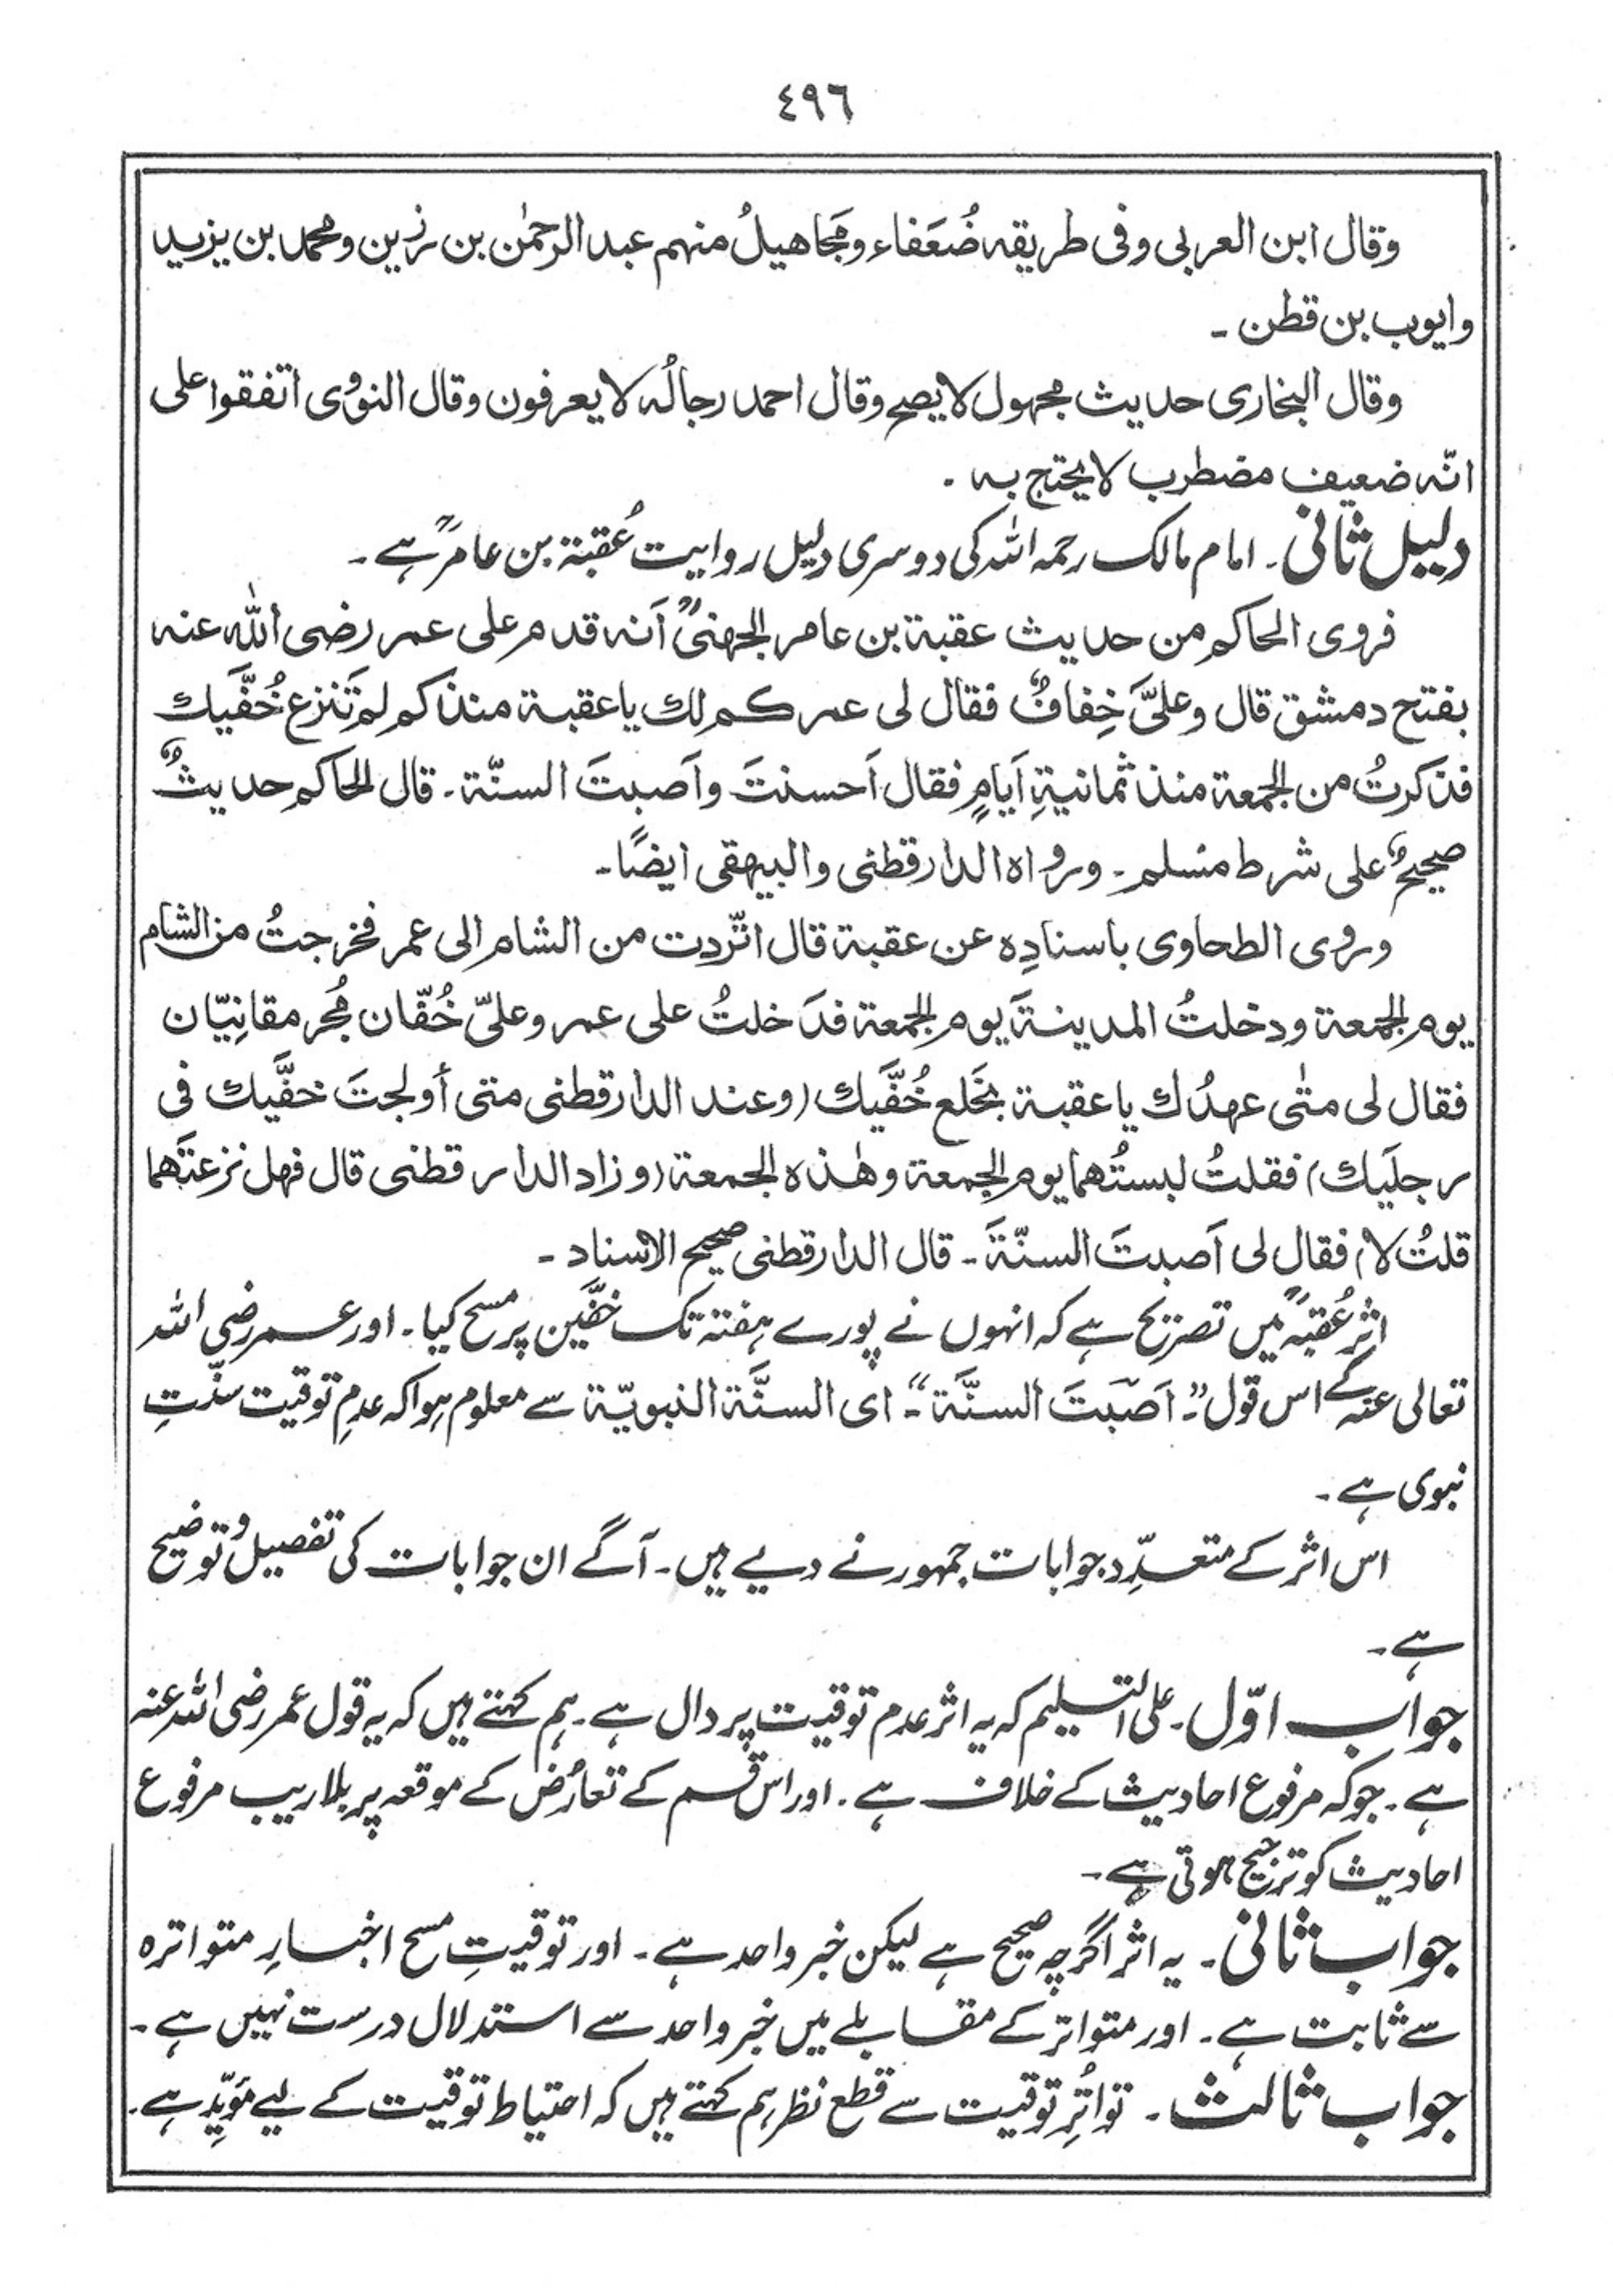 ٤٩٦
وقال ابن العربی وفی طریقه ضُعَفاء ومَجاهیلُ منهم عبد الرحمٰن بن رزین ومحمد بن یزید
وایوب بن قطن ۔
وقال البخاری حدیث مجهول لا یصح وقال احمد رجالُه لا یعرفون وقال النووی اتفقوا علی
انّه ضعیف مضطرب لا یحتج به ۔
دلیل ثانی۔ امام مالک رحمہ اللہ کی دوسری دلیل روایت عُقبۃ بن عامرؓ ہے۔
فروی الحاکم من حدیث عقبة بن عامر الجهنیؓ اَنه قدم علی عمر رضی اللّٰه عنه
بفتح دمشق قال وعلیَّ خِفافٌ فقال لی عمر کم لك یا عقبة منذ کم لم تَنزع خُفَّیك
فذکرتُ من الجمعة منذ ثمانیةِ اَیامٍ فقال اَحسنتَ واَصبتَ السنّة۔ قال الحاکم حدیثٌ
صحیحٌ علی شرط مسلم۔ ورواه الدارقطنی والبیهقی ایضًا۔
وروی الطحاوی باسنادِه عن عقبة قال اتّردت من الشام الی عمر فخرجتُ من الشام
یوم الجمعة ودخلتُ المدینةَ یوم الجمعة فدَخلتُ علی عمر وعلیّ خُفّان مُجرمقانِیّان
فقال لی متٰی عهدُك یا عقبة بخَلع خُفَّیك (وعند الدارقطنی متی أولجتَ خفَّیك فی
رجلَیك) فقلتُ لبستُهما یوم الجمعة وهٰذه الجمعة (وزاد الدارقطنی قال فهل نزعتَهما
قلتُ لا) فقال لی اَصبتَ السنّةَ۔ قال الدارقطنی صحیح الاسناد ۔
اثرِ عُقبہؓ میں تصریح ہے کہ انہوں نے پورے ہفتہ تک خفَّین پر مسح کیا۔ اور عمر رضی اللہ
تعالی عنہ کے اس قول "۔ اَصَبتَ السنَّة"۔ ای السنَّة النبویّة سے معلوم ہوا کہ عدمِ توقیت سنّتِ
نبوی ہے ۔
اس اثر کے متعدِّد جوابات جمہور نے دیے ہیں۔ آگے ان جوابات کی تفصیل و توضیح
ہے۔
جواب اوّل۔ علی التسلیم کہ یہ اثر عدم توقیت پر دال ہے۔ ہم کہتے ہیں کہ یہ قول عمر رضی اللہ عنہ
ہے۔ جو کہ مرفوع احادیث کے خلاف ہے۔ اور اس قسم کے تعارُض کے موقعہ پر بلاریب مرفوع
احادیث کو ترجیح ہوتی ہے۔
جواب ثانی۔ یہ اثر اگرچہ صحیح ہے لیکن خبر واحد ہے۔ اور توقیتِ مسح اخبارِ متواترہ
سے ثابت ہے۔ اور متواتر کے مقابلے میں خبر واحد سے استدلال درست نہیں ہے۔
جواب ثالث۔ تواتُرِ توقیت سے قطع نظر ہم کہتے ہیں کہ احتیاط توقیت کے لیے مؤیِّد ہے۔